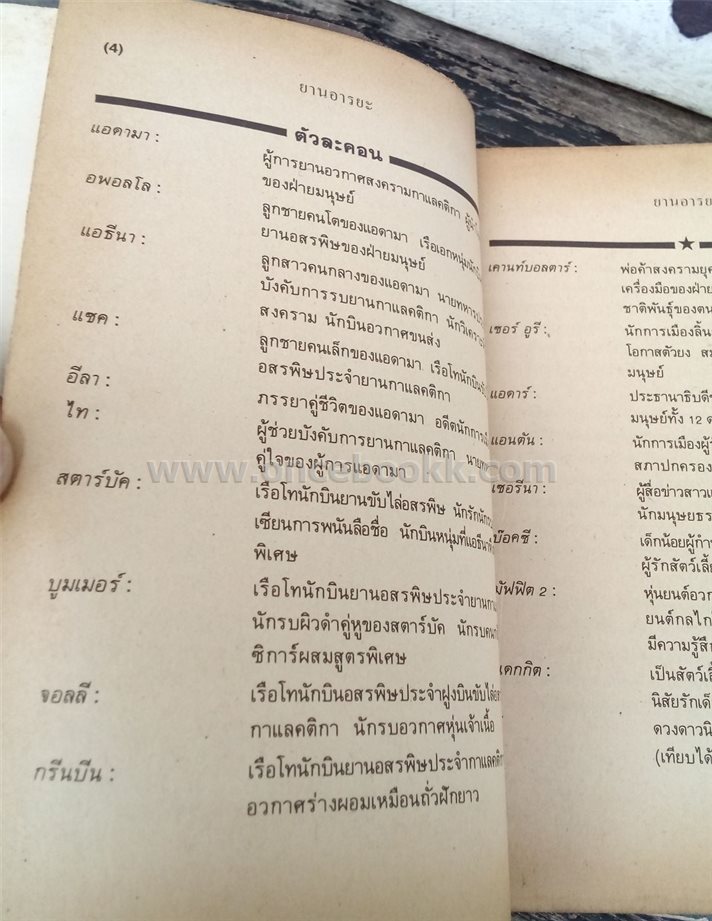 (4)
ยานอารยะ
ตัวละคอน
แอดามา : ผู้การยานอวกาศสงครามกาแลคติกา
ของฝ่ายมนุษย์
อพอลโล : ลูกชายคนโตของแอดามา เรือเอกหนุ่ม
ยานอสรพิษของฝ่ายมนุษย์
แอธีนา : ลูกสาวคนกลางของแอดามา นายทหาร
บังคับการรบยานกาแลคติกา
สงคราม นักบินอวกาศขนส่ง
แซค : ลูกชายคนเล็กของแอดามา เรือโทนักบิน
อสรพิษประจำยานกาแลคติกา
อีลา : ภรรยาคู่ชีวิตของแอดามา
ไท : ผู้ช่วยบังคับการยานกาแลคติกา
คู่ใจของผู้การแอดามา
สตาร์บัค : เรือโทนักบินยานขับไล่อสรพิษ นักรัก
เซียนการพนันลือชื่อ นักบินหนุ่มที่แอธีนา
พิเศษ
บูมเมอร์ : เรือโทนักบินยานอสรพิษประจำยาน
นักรบผิวดำคู่หูของสตาร์บัค นักรบ
ซิการ์ผสมสูตรพิเศษ
จอลลี : เรือโทนักบินอสรพิษประจำฝูงบินขับไล่
กาแลคติกา นักรบอวกาศหุ่นเจ้าเนื้อ
กรีนบีน : เรือโทนักบินยานอสรพิษประจำกาแลคติกา
อวกาศร่างผอมเหมือนถั่วฝักยาว
www.oncebookk.com
ยานอารย
เคานท์บอลตาร์ : พ่อค้าสงครามยุค
เครื่องมือของฝ่าย
ชาติพันธุ์ของตน
เซอร์ อูรี : นักการเมืองลิ้น
โอกาสตัวยง
มนุษย์
แอดาร์ : ประธานาธิบดี
มนุษย์ทั้ง 12
แอนตัน : นักการเมืองผู้
สภาปกครอง
เซอรีนา : ผู้สื่อข่าวสาว
นักมนุษยธร
บ๊อคซี : เด็กน้อยผู้กำ
ผู้รักสัตว์เลี้
มัฟฟิต 2 : หุ่นยนต์อวก
ยนต์กลไก
มีความรู้สึ
แดกกิต : เป็นสัตว์เลี้
นิสัยรักเด็
ดวงดาว
(เทียบได้